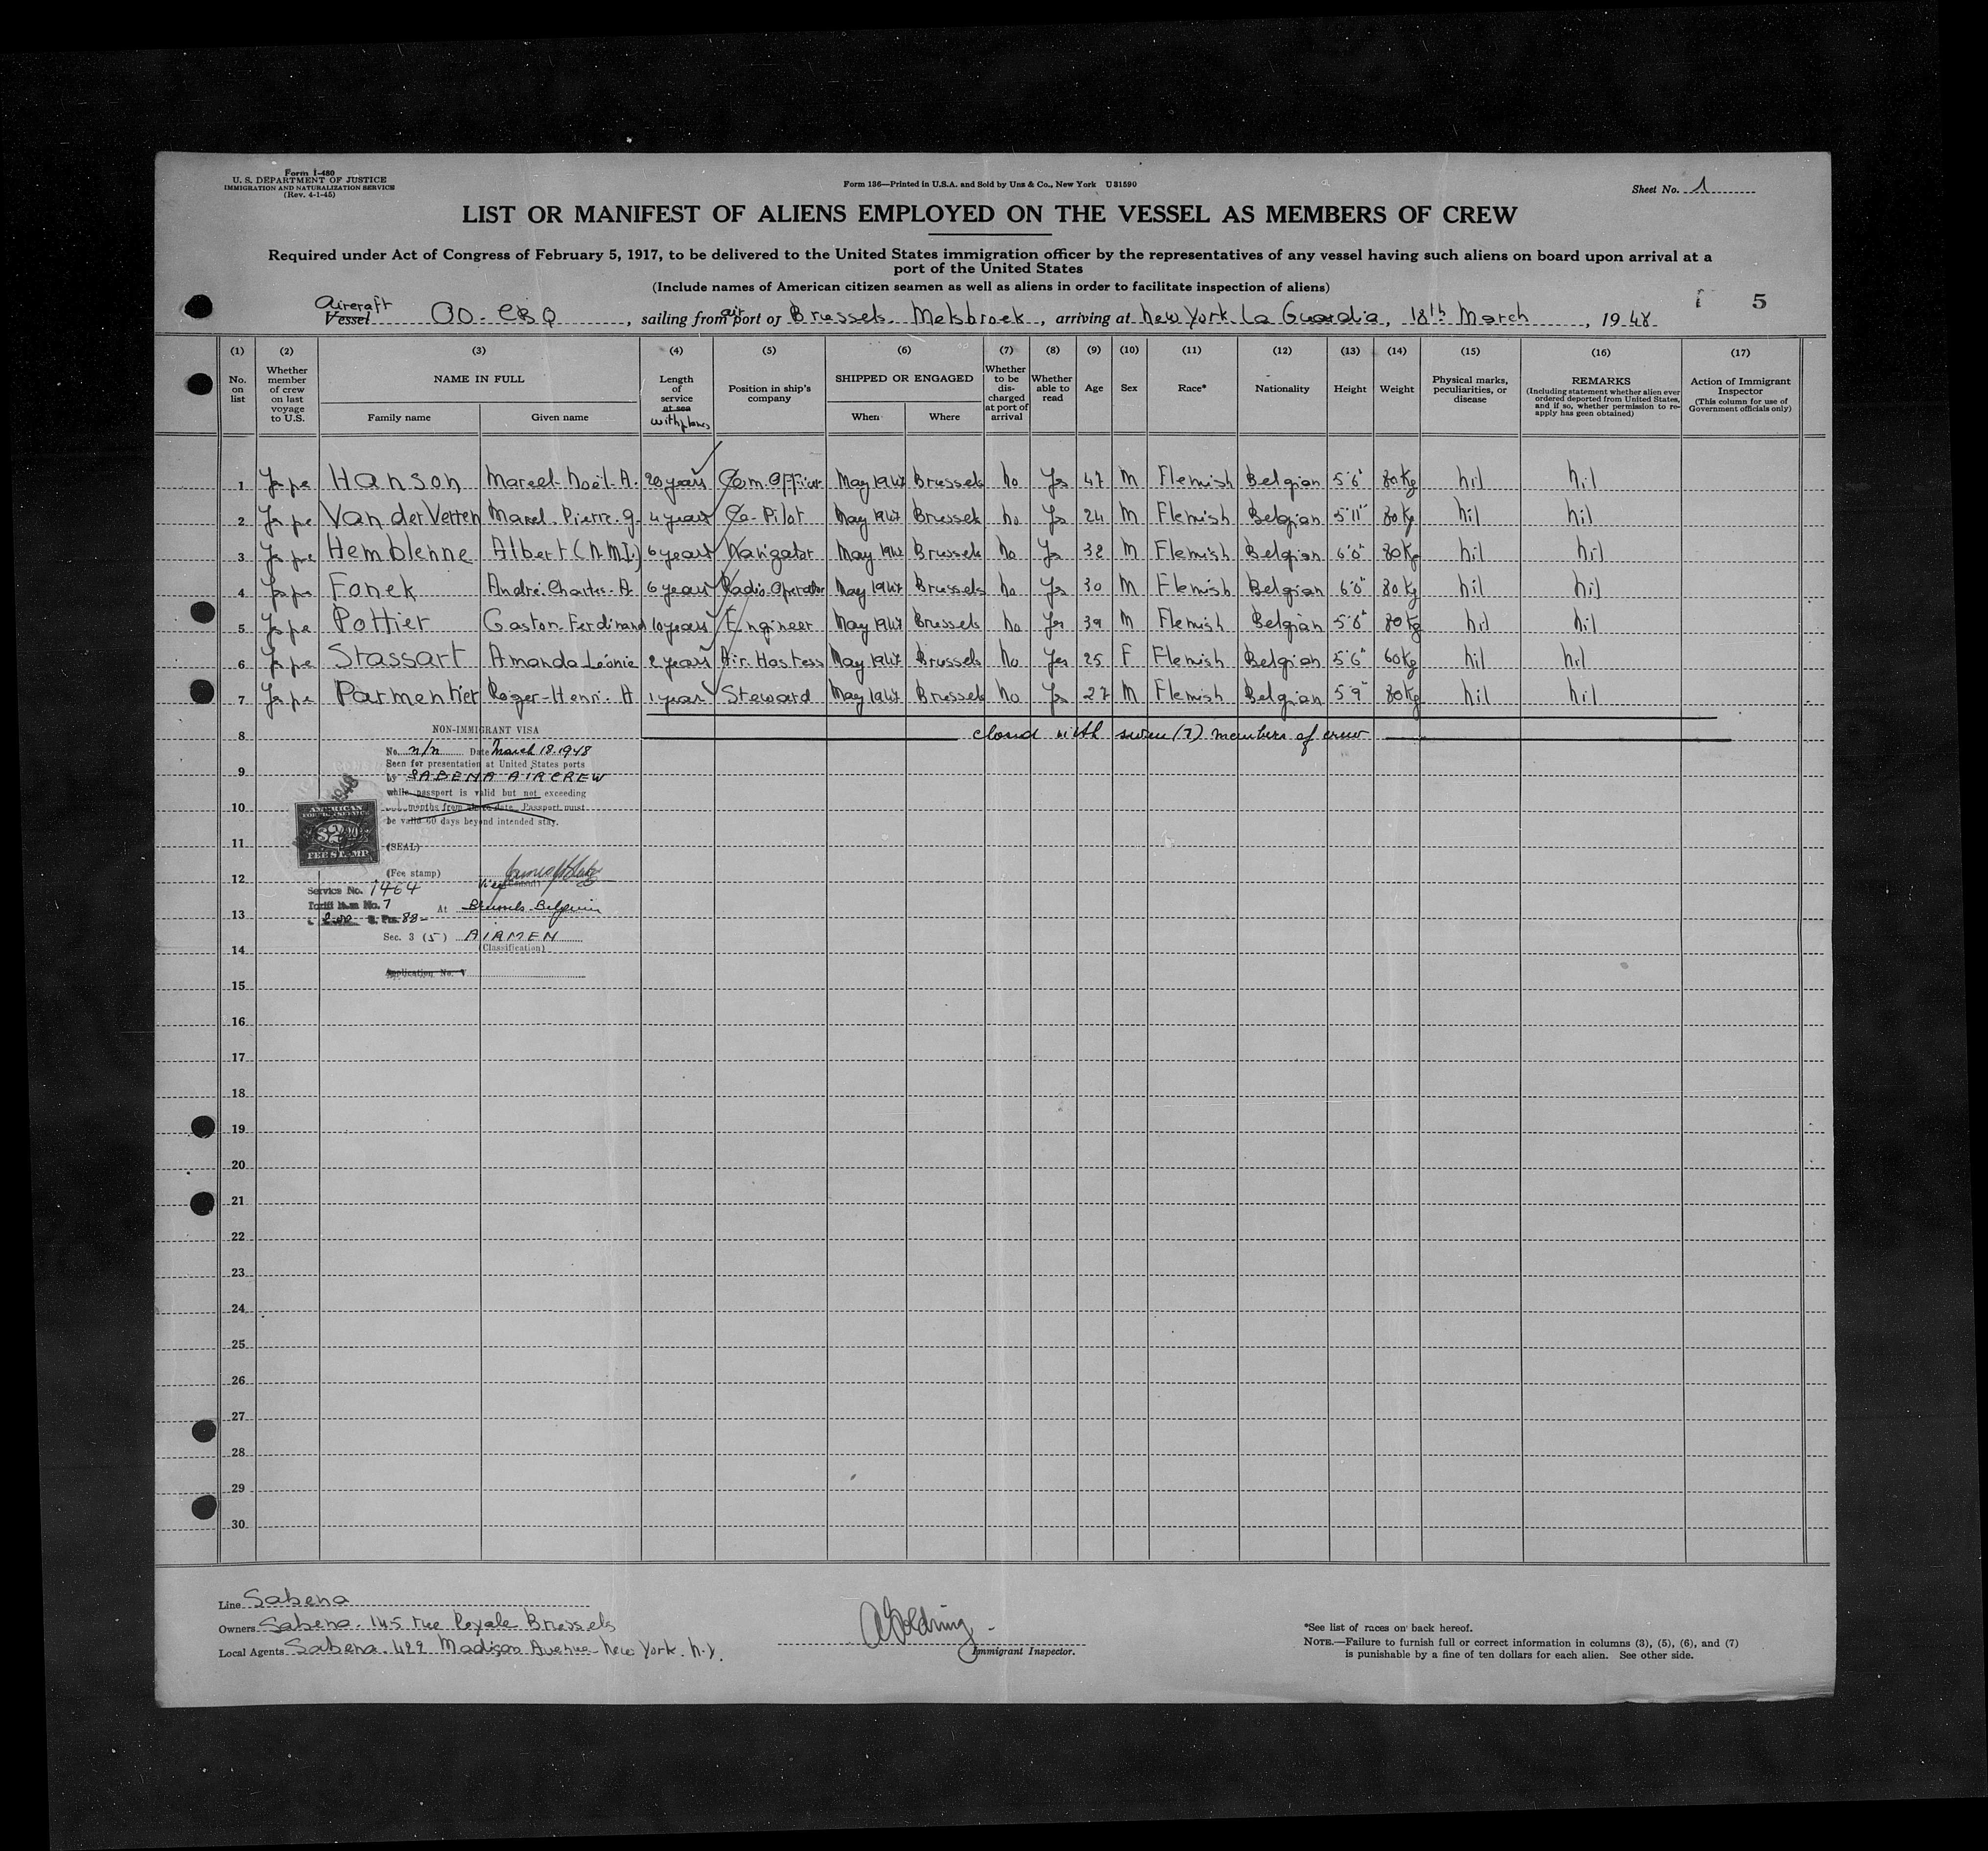 Form I-480
U. S. DEPARTMENT OF JUSTICE
IMMIGRATION AND NATURALIZATION SERVICE
(Rev. 4-1-45)
Form 136—Printed in U.S.A. and Sold by Unz & Co., New York U 31590
Sheet No. 1
LIST OR MANIFEST OF ALIENS EMPLOYED ON THE VESSEL AS MEMBERS OF CREW
Required under Act of Congress of February 5, 1917, to be delivered to the United States immigration officer by the representatives of any vessel having such aliens on board upon arrival at a
port of the United States
(Include names of American citizen seamen as well as aliens in order to facilitate inspection of aliens)
5
Aircraft
Vessel OO-CBQ, sailing from air port of Brussels. Melsbroek, arriving at New York La Guardia, 18th March, 1948
(1) No. on list
(2) Whether member of crew on last voyage to U.S.
(3) NAME IN FULL Family name Given name
(4) Length of service at sea with planes
(5) Position in ship's company
(6) SHIPPED OR ENGAGED When Where
(7) Whether to be discharged at port of arrival
(8) Whether able to read
(9) Age
(10) Sex
(11) Race*
(12) Nationality
(13) Height
(14) Weight
(15) Physical marks, peculiarities, or disease
(16) REMARKS (Including statement whether alien ever ordered deported from United States, and if so, whether permission to re-apply has geen obtained)
(17) Action of Immigrant Inspector (This column for use of Government officials only)
1 Hanson Marcel-Noël-A. 20 years Com. Officer May 1947 Brussels No Yes 47 M Flemish Belgian 5'6" 80Kg nil nil
2 Van der Vetten Marcel. Pierre. G. 4 years Co-Pilot May 1947 Brussels No Yes 24 M Flemish Belgian 5'11" 80Kg nil nil
3 Hemblenne Albert (N.M.I.) 6 years Navigator May 1947 Brussels No Yes 32 M Flemish Belgian 6'0" 80Kg nil nil
4 Fonek André. Charles. A 6 years Radio Operator May 1947 Brussels No Yes 30 M Flemish Belgian 6'0" 80Kg nil nil
5 Pottier Gaston-Ferdinand 10 years Engineer May 1947 Brussels No Yes 39 M Flemish Belgian 5'6" 80Kg nil nil
6 Stassart Amanda Léonie 2 years Air. Hostess May 1947 Brussels No Yes 25 F Flemish Belgian 5'6" 60Kg nil nil
7 Parmentier Roger-Henri. H 1 year Steward May 1947 Brussels No Yes 27 M Flemish Belgian 5'9" 80Kg nil nil
8 closed with seven (7) members of crew
NON-IMMIGRANT VISA
No. n/n Date March 18. 1948
Seen for presentation at United States ports
by SABENA AIRCREW
9
while passport is valid but not exceeding
months from above date. Passport must
be valid 60 days beyond intended stay.
10
AMERICAN
FOREIGN SERVICE
$2.00
FEE STAMP
11
(SEAL)
(Fee stamp)
12
Vice
Service No. 1464
Tariff Item No. 7
13
At Brussels. Belgium
Sec. 3 (5) AIRMEN
(Classification)
14
Application No. V
15
16
17
18
19
20
21
22
23
24
25
26
27
28
29
30
Line Sabena
Owners Sabena. 145 rue Royale Brussels
Local Agents Sabena. 422 Madison Avenue New York. N.Y.
A Goldring
Immigrant Inspector.
*See list of races on back hereof.
NOTE.—Failure to furnish full or correct information in columns (3), (5), (6), and (7)
is punishable by a fine of ten dollars for each alien. See other side.